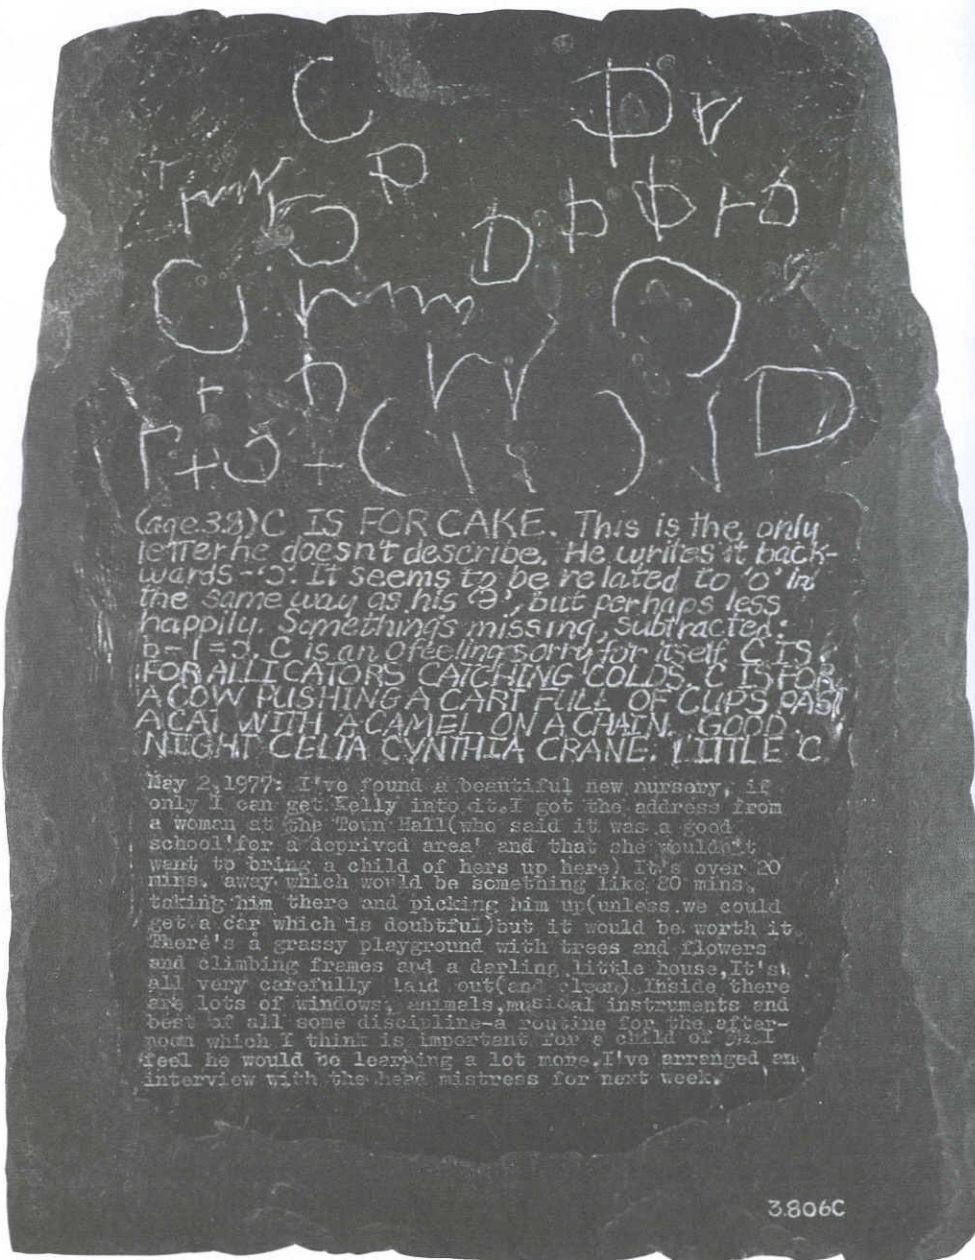 C D r
(age 3.8) C IS FOR CAKE. This is the only
letter he doesn't describe. He writes it back-
wards-'ɔ'. It seems to be related to 'o' in
the same way as his 'ə', but perhaps less
happily. Something's missing, subtracted:
C is an o feeling sorry for itself. C IS
FOR ALLIGATORS CATCHING COLDS. C IS FOR
A COW PUSHING A CART FULL OF CUPS PAST
A CAT WITH A CAMEL ON A CHAIN. GOOD
NIGHT CELIA CYNTHIA CRANE. LITTLE C.
May 2,1977: I've found a beautiful new nursery, if
only I can get Kelly into it.I got the address from
a woman at the Town Hall(who said it was a good
school'for a deprived area' and that she wouldn't
want to bring a child of hers up here) It's over 20
mins. away which would be something like 80 mins.
taking him there and picking him up(unless we could
get a car which is doubtful)but it would be worth it.
There's a grassy playground with trees and flowers
and climbing frames and a darling little house,It's
all very carefully laid out(and clean).Inside there
are lots of windows, animals,musical instruments and
best of all some discipline-a routine for the after-
noon which I think is important for a child of 3½.I
feel he would be learning a lot more.I've arranged an
interview with the head mistress for next week.
3.806C